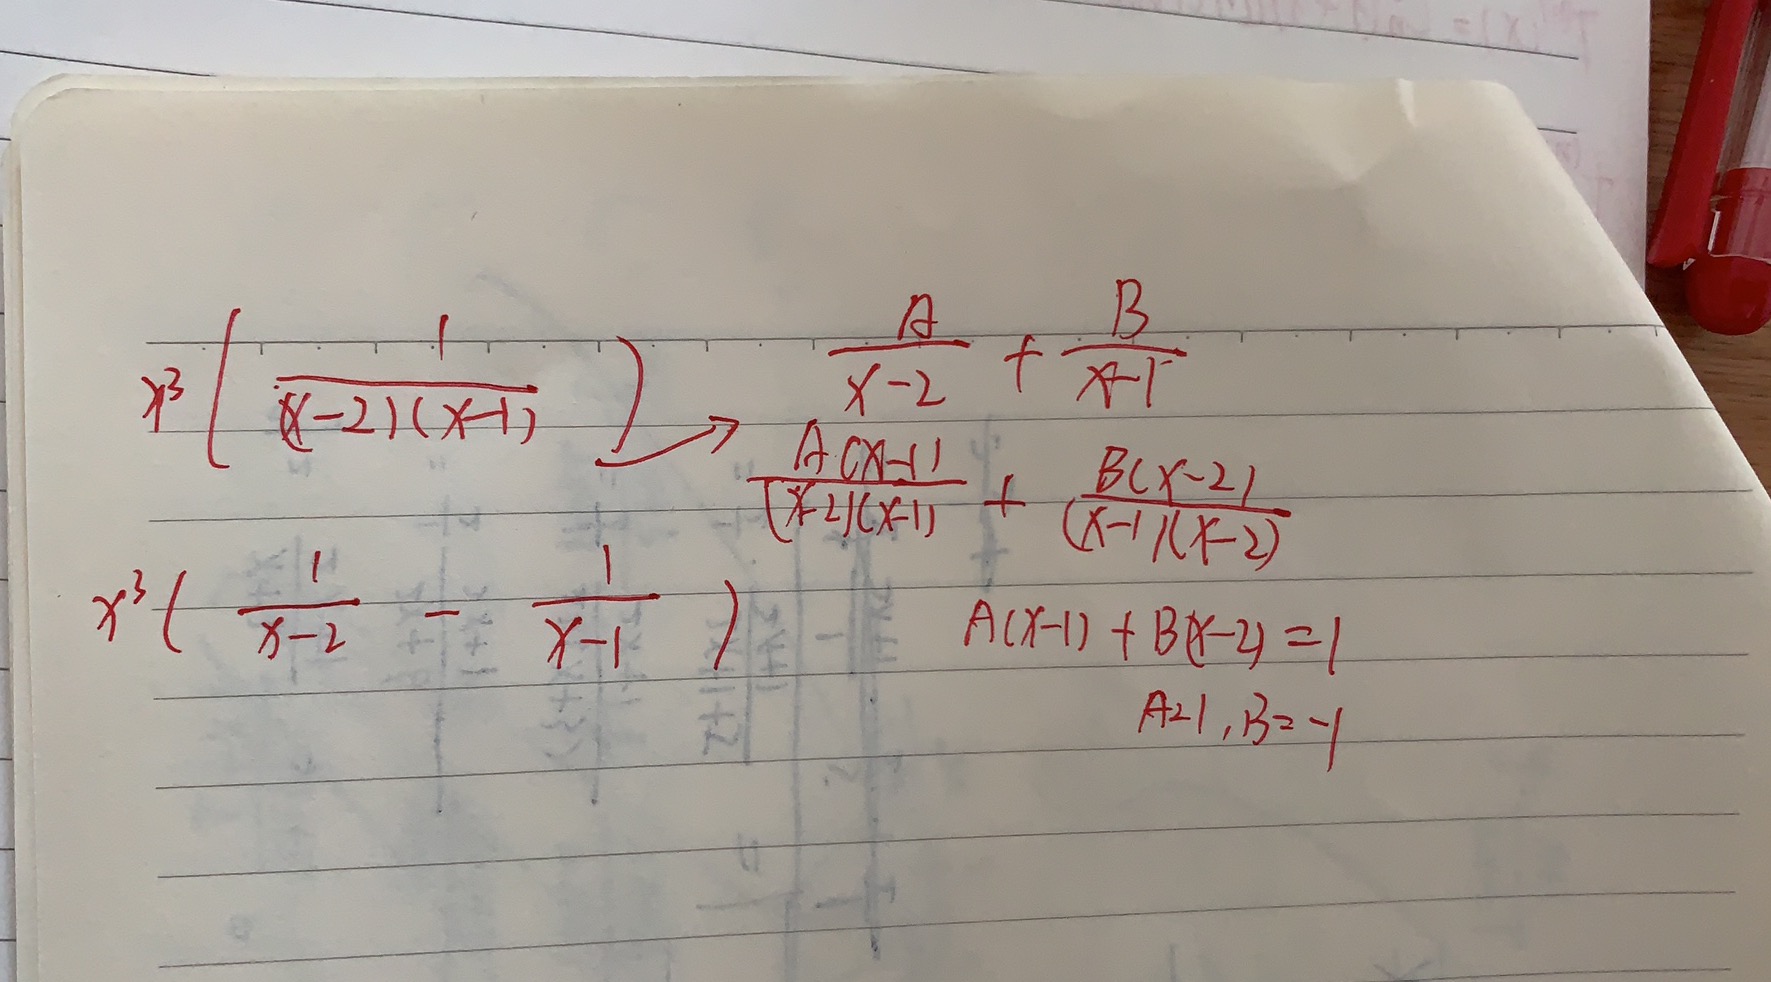 x³ ( 1 / (x-2)(x-1) ) → A / (x-2) + B / (x-1)
A(x-1) / (x-2)(x-1) + B(x-2) / (x-1)(x-2)
x³ ( 1 / (x-2) - 1 / (x-1) )
A(x-1) + B(x-2) = 1
A=1, B=-1